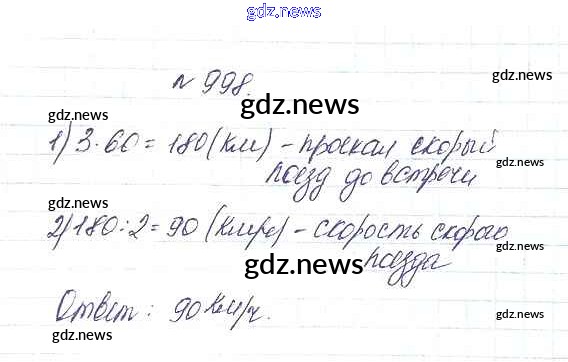 gdz.news
№ 998.
gdz.news
gdz.news
gdz.news
1) 3·60 = 180 (км) - проехал скорый
gdz.news
поезд до встречи
gdz.news
2) 180:2 = 90 (км/ч) - скорость скорого
gdz.news
gdz.news
поезда
Ответ: 90 км/ч.
gdz.news
gdz.news